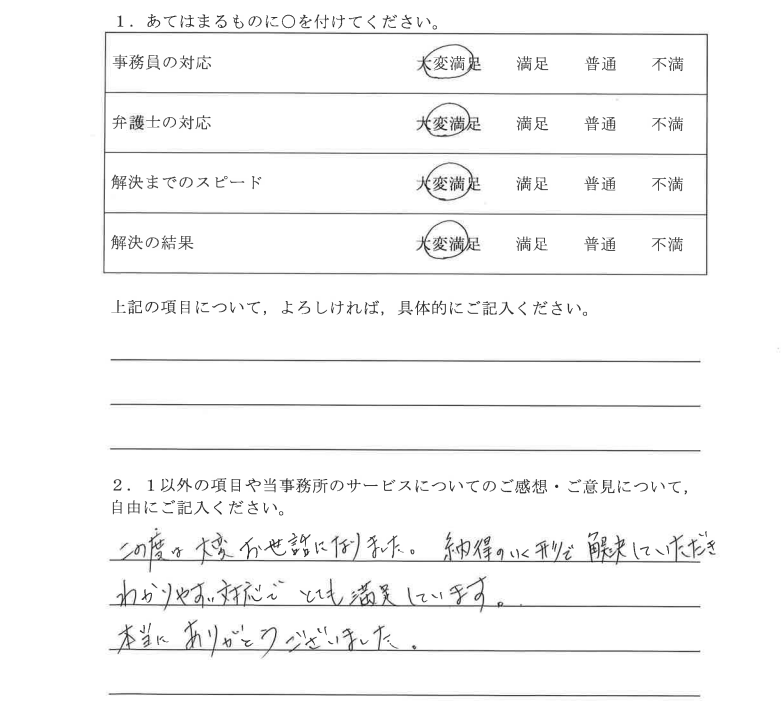 １．あてはまるものに〇を付けてください。
事務員の対応 大変満足 満足 普通 不満
弁護士の対応 大変満足 満足 普通 不満
解決までのスピード 大変満足 満足 普通 不満
解決の結果 大変満足 満足 普通 不満
上記の項目について，よろしければ，具体的にご記入ください。
２．１以外の項目や当事務所のサービスについてのご感想・ご意見について，
自由にご記入ください。
この度は大変お世話になりました。納得のいく形で解決していただき
わかりやすい対応でとても満足しています。
本当にありがとうございました。